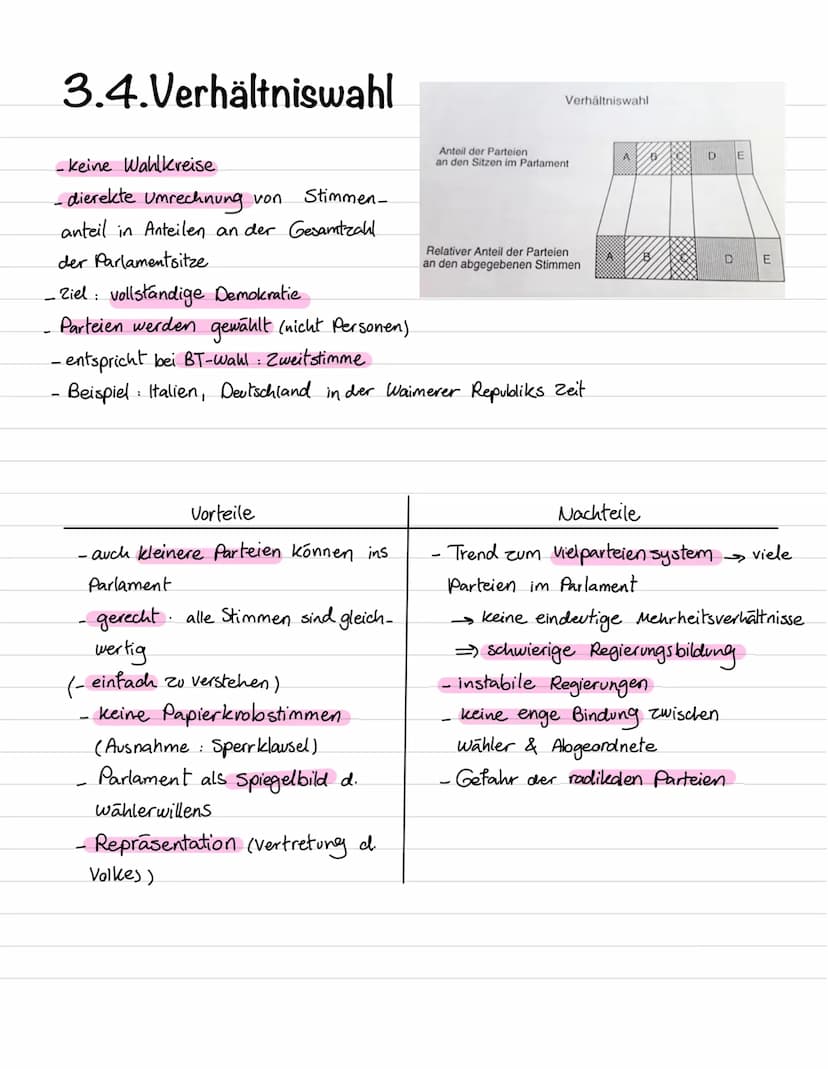 3.4.Verhältniswahl
Verhältniswahl
Anteil der Parteien
an den Sitzen im Parlament
A B C D E
Relativer Anteil der Parteien
an den abgegebenen Stimmen
A B C D E
- keine Wahlkreise
- dierekte Umrechnung von Stimmen-
anteil in Anteilen an der Gesamtzahl
der Parlamentsitze
- Ziel : vollständige Demokratie
- Parteien werden gewählt (nicht Personen)
- entspricht bei BT-Wahl : Zweitstimme
- Beispiel : Italien, Deutschland in der Waimerer Republiks Zeit
Vorteile
- auch kleinere Parteien können ins
Parlament
- gerecht : alle Stimmen sind gleich-
wertig
(- einfach zu verstehen)
- keine Papierkrobstimmen
(Ausnahme : Sperrklausel)
- Parlament als Spiegelbild d.
Wählerwillens
- Repräsentation (Vertretung d.
Volkes)
Nachteile
- Trend zum Vielparteiensystem → viele
Parteien im Parlament
→ keine eindeutige Mehrheitsverhältnisse
⇒ schwierige Regierungsbildung
- instabile Regierungen
- keine enge Bindung zwischen
Wähler & Abgeordnete
- Gefahr der radikalen Parteien